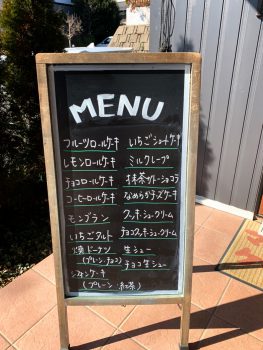 MENU
フルーツロールケーキ いちごショートケーキ
レモンロールケーキ ミルクレープ
チョコロールケーキ 抹茶ガトーショコラ
コーヒーロールケーキ なめらかチーズケーキ
モンブラン クッキーシュークリーム
いちごタルト チョコクッキーシュークリーム
焼ドーナツ 生シュー
(プレーン・チョコ) チョコ生シュー
シフォンケーキ
(プレーン・紅茶)